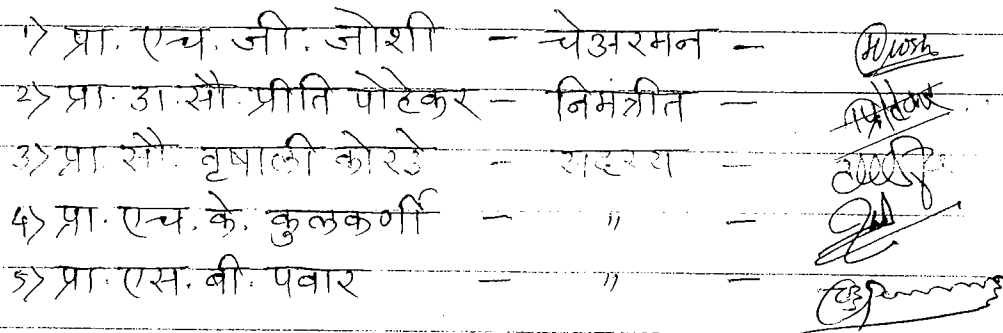 १) प्रा. एच. जी. जोशी - चेअरमन -
२) प्रा. डा. सौ. प्रीति पोहेकर - निमंत्रीत -
३) प्रा. सौ. वृषाली कोरडे - सदस्य -
४) प्रा. एच. के. कुलकर्णी - " -
५) प्रा. एस. बी. पवार - " -